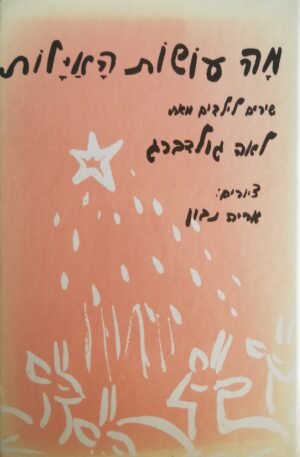 מָה עוֹשׂוֹת הָאַיָּלוֹת
שירים לילדים מאת
לאה גולדברג
ציורים:
אריה נבון